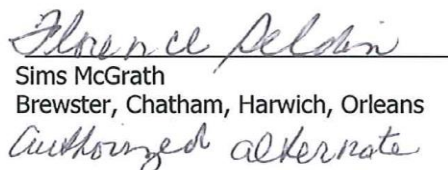 Florence Seldin
Sims McGrath
Brewster, Chatham, Harwich, Orleans
authorized alternate